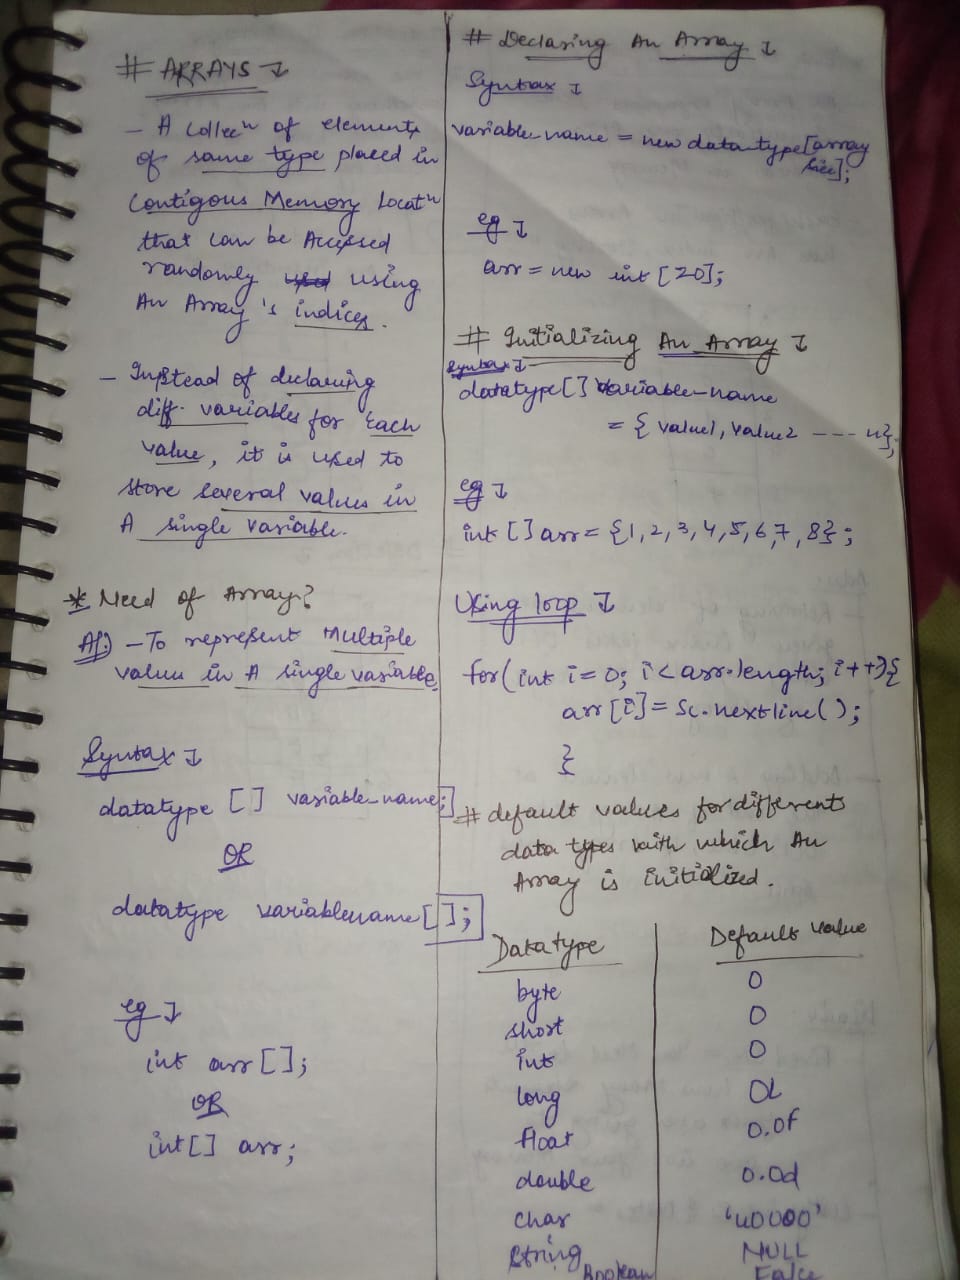 # ARRAYS
- A Collecⁿ of elements
of same type placed in
Contigous Memory Locatⁿ
that can be Accessed
randomly using
An Array's indices.
- Instead of declaring
diff. variables for Each
value, it is used to
store several values in
A single variable.
* Need of Array?
A1) - To represent Multiple
values in A single variable.
Syntax
datatype [] variable_name;
OR
datatype variablename[];
eg
int arr [];
OR
int[] arr;
# Declaring An Array
Syntax
variable_name = new data_type[array
size];
eg
arr = new int [20];
# Initializing An Array
Syntax
datatype[] variable_name
= { value1, value2 ---- n};
eg
int [] arr = {1,2,3,4,5,6,7,8};
Using loop
for(int i=0; i<arr.length; i++){
arr[i]=Sc.nextline();
}
# default values for different
data types with which An
Array is initialized.
Datatype Default value
byte 0
short 0
int 0
long 0L
float 0.0f
double 0.0d
char 'u0000'
String NULL
Boolean False